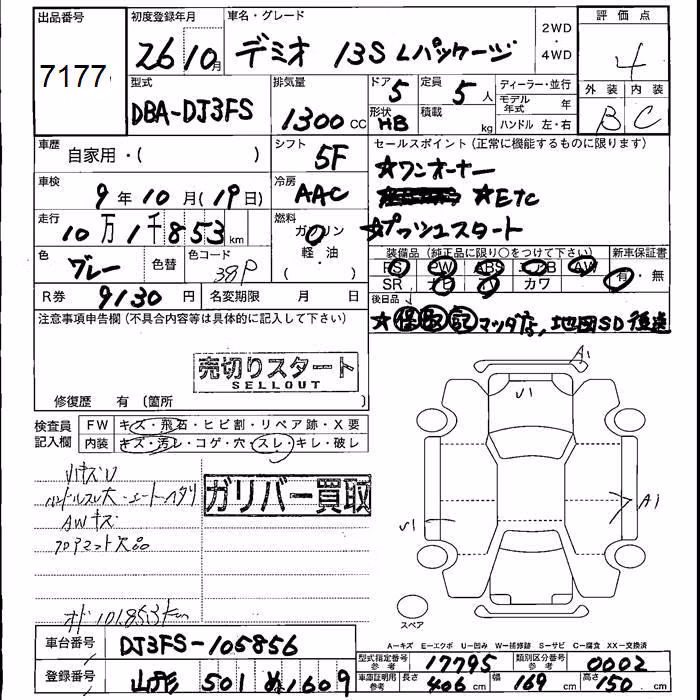 出品番号
7177
初度登録年月
26 10月
車名・グレード
デミオ 13S Lパッケージ
2WD
・
4WD
評価点
4
外装 内装
B C
型式
DBA-DJ3FS
排気量
1300 CC
ドア 5
形状 HB
定員 5 人
積載 kg
ディーラー・並行
モデル年式 年
ハンドル 左・右
車歴
自家用・( )
シフト
5F
セールスポイント(正常に機能するものに限ります)
☆ワンオーナー
☆ETC
☆プッシュスタート
車検
9年10月(19日)
冷房
AAC
走行
10万1千853km
燃料
ガソリン
軽油
( ・ )
色
グレー
色替
色コード
38P
装備品(純正品に限り○をつけて下さい)
新車保証書
PS PW ABS エアB AW
SR ナビ カワ
有・無
R券 9130円
名変期限 月 日
後日品
☆保取記 マツダ店, 地図SD後送
注意事項申告欄(不具合内容等は具体的に記入して下さい)
売切りスタート
SELLOUT
修復歴 有(箇所
検査員
記入欄
FW キズ・飛石・ヒビ割・リペア跡・X要
内装 キズ・汚レ・コゲ・穴・スレ・キレ・破レ
ハンドルスレ大
AWキズ
フロアマット欠品
オド101,853km
ガリバー買取
A1
U1
A1
スペア
車台番号
DJ3FS-105856
登録番号
山形 501 ぬ1609
A-キズ E-エクボ U-凹み W-補修跡 S-サビ C-腐食 XX-交換済
型式指定番号
参考
17795
類別区分番号
参考
0002
車庫証明用
参考
長さ 406 cm
幅 169 cm
高さ 150 cm